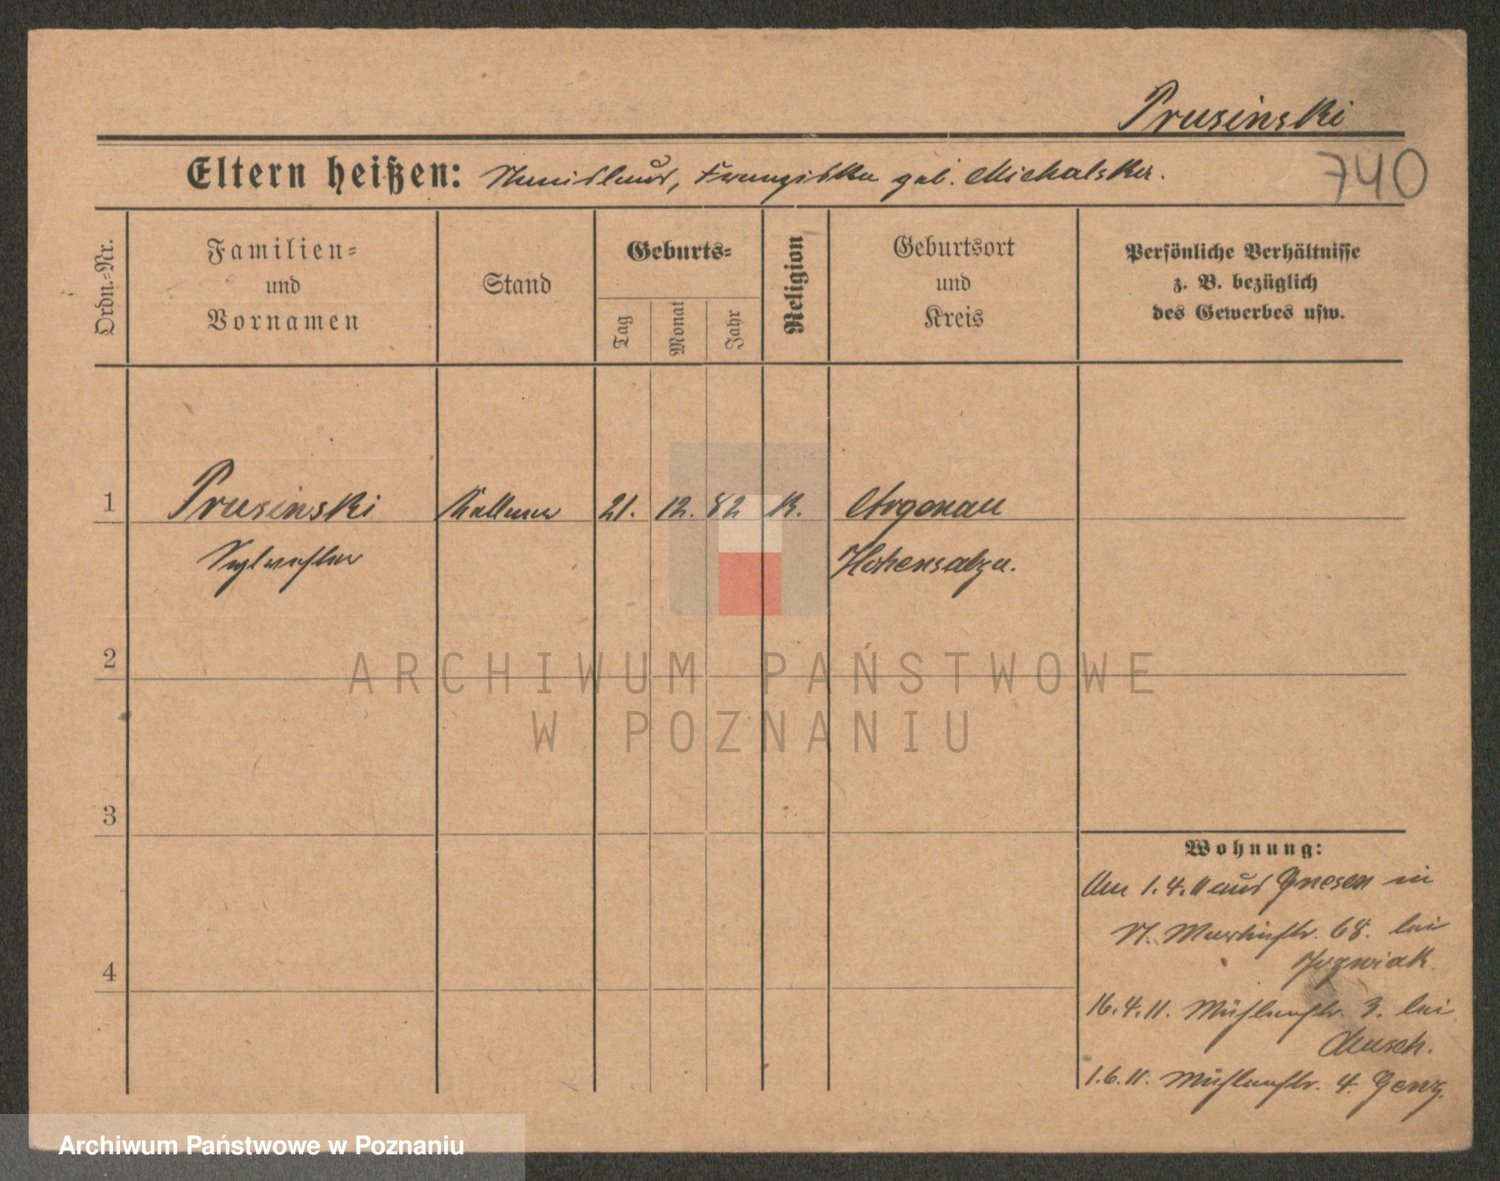 Prusinski
740
Eltern heißen: Stanislaus, Franziska geb. Michalska.
Ordn.-Nr.
Familien-
und
Vornamen
Stand
Geburts-
Tag
Monat
Jahr
Religion
Geburtsort
und
Kreis
Persönliche Verhältnisse
z. B. bezüglich
des Gewerbes usw.
1 Prusinski Kellner 21. 12. 82 K. Argenau
Sylvester Hohensalza.
2
3
4
Wohnung:
Am 1.4.11 aus Gnesen in
St. Martinstr. 68. bei
Jozwiak.
16.4.11. Mühlenstr. 3. bei
1.6.11. Mühlenstr. 4. Genz.
ARCHIWUM PAŃSTWOWE
W POZNANIU
Archiwum Państwowe w Poznaniu